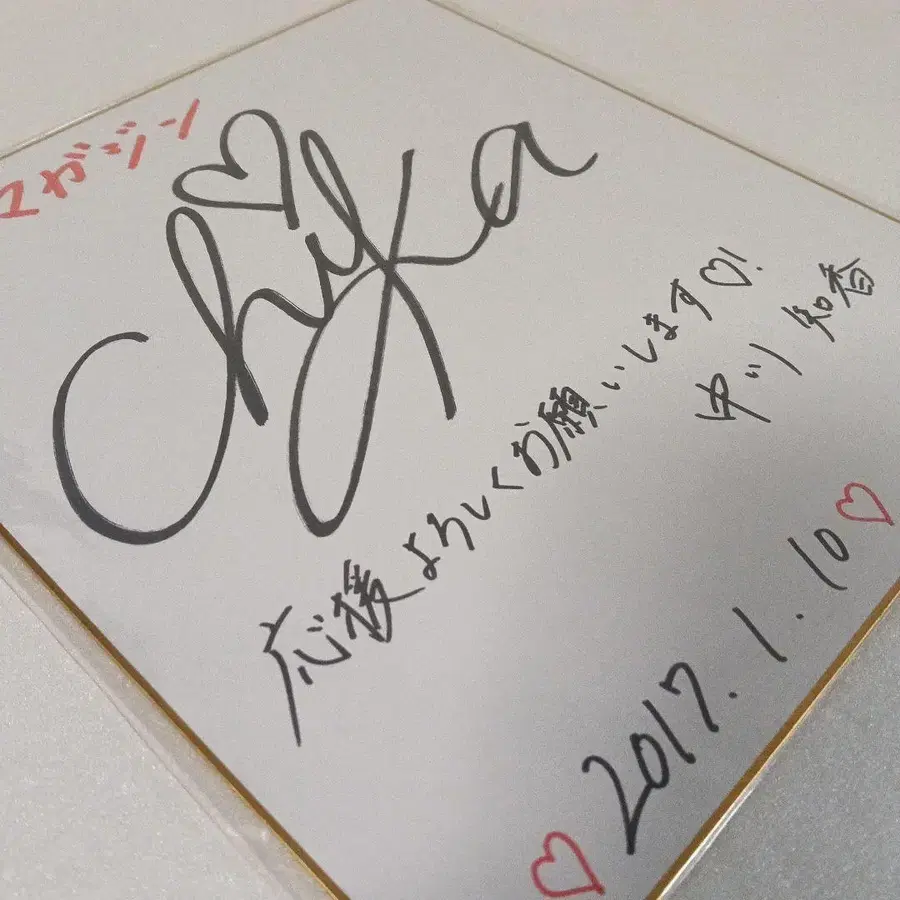 マガジン
Chika
応援よろしくお願いします♡!
ゆづ 知香
2017.1.10♡